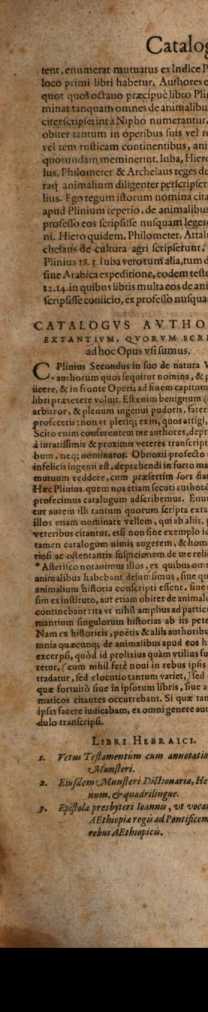 Catalog
tent, enumerat mutuatus ex Indice P
loco primi libri habetur. Authores
quot quos octauo præcipuè libro Plin
minat tanquam omnes de animalibus
citer scripserint à Nipho numerantur,
obiter tantum in operibus suis vel r
vel rem rusticam continentibus, ani
quorundam meminerunt. Iuba, Hiero
lus, Philometer & Archelaus reges de
rari animalium diligenter perscripser
lius. Ego regum istorum nomina cita
apud Plinium reperio, de animalibus
professo eos scripsisse nusquam legere
ni. Hiero quidem, Philometer, Attal
chelaus de cultura agri scripserunt,
Plinius 18.3. Iuba verò tum alia, tum d
siue Arabica expeditione, eodem teste
12.14. in quibus libris multa eos de ani
scripsisse coniicio, ex professo nusqua
CATALOGVS AVTHO
EXTANTIVM, QVORVM SCRI
ad hoc Opus vsi sumus.
C. Plinius Secundus in suo de natura
authorum quos sequitur nomina, &
uicere, & in fronte Operis ad finem capitum
libri prætexere voluit. Est enim benignum (
arbitror, & plenum ingenui pudoris, fateri
profeceris: non vt plerique ex iis, quos attigi,
Scito enim conferentem me authores, depr
à iuratissimis & proximis veteres transcript
bum, neque nominatos. Obnoxii profecto
infelicis ingenii est, deprehendi in furto ma
mutuum reddere, cum præsertim sors fiat
Hæc Plinius. quem nos etiam secuti authorū
profecimus catalogum adscribemus. Enum
tur autem illi tantum quorum scripta exta
illos etiam nominare vellem, qui ab aliis, p
veteribus citantur, etsi non sine exemplo id
tamen catalogum nimis augerem, & hom
riosi ac ostentantis suspicionem de me relin
* Asterisco notauimus illos, ex quibus om
animalibus habebant desumsimus, siue qu
animalium historia conscripti essent, siue
sim ex instituto, aut etiam obiter de animali
continebant: ita vt nihil amplius ad particu
mantium singulorum historias ab iis pete
Nam ex historicis, poetis & aliis authoribus
mnia quæcunque de animalibus apud eos h
excerpsi, quòd id prolixius quàm vtilius fu
retor, (cum nihil ferè noui in rebus ipsis
tradatur, sed elocutio tantum variet,) sed
quæ fortuitò siue in ipsorum libris, siue a
maticos citantes occurrebant. Si quæ tan
ipsos facere iudicabam, ex omni genere aut
dulò transcripsi.
LIBRI HEBRAICI.
1. Vetus Testamentum cum annotatio
Munsteri.
2. Eiusdem Munsteri Dictionaria, He
num, & quadrilingue.
3. Epistola presbyteri Ioannis, vt vocan
AEthiopiæ regis ad Pontificem
rebus AEthiopicis.